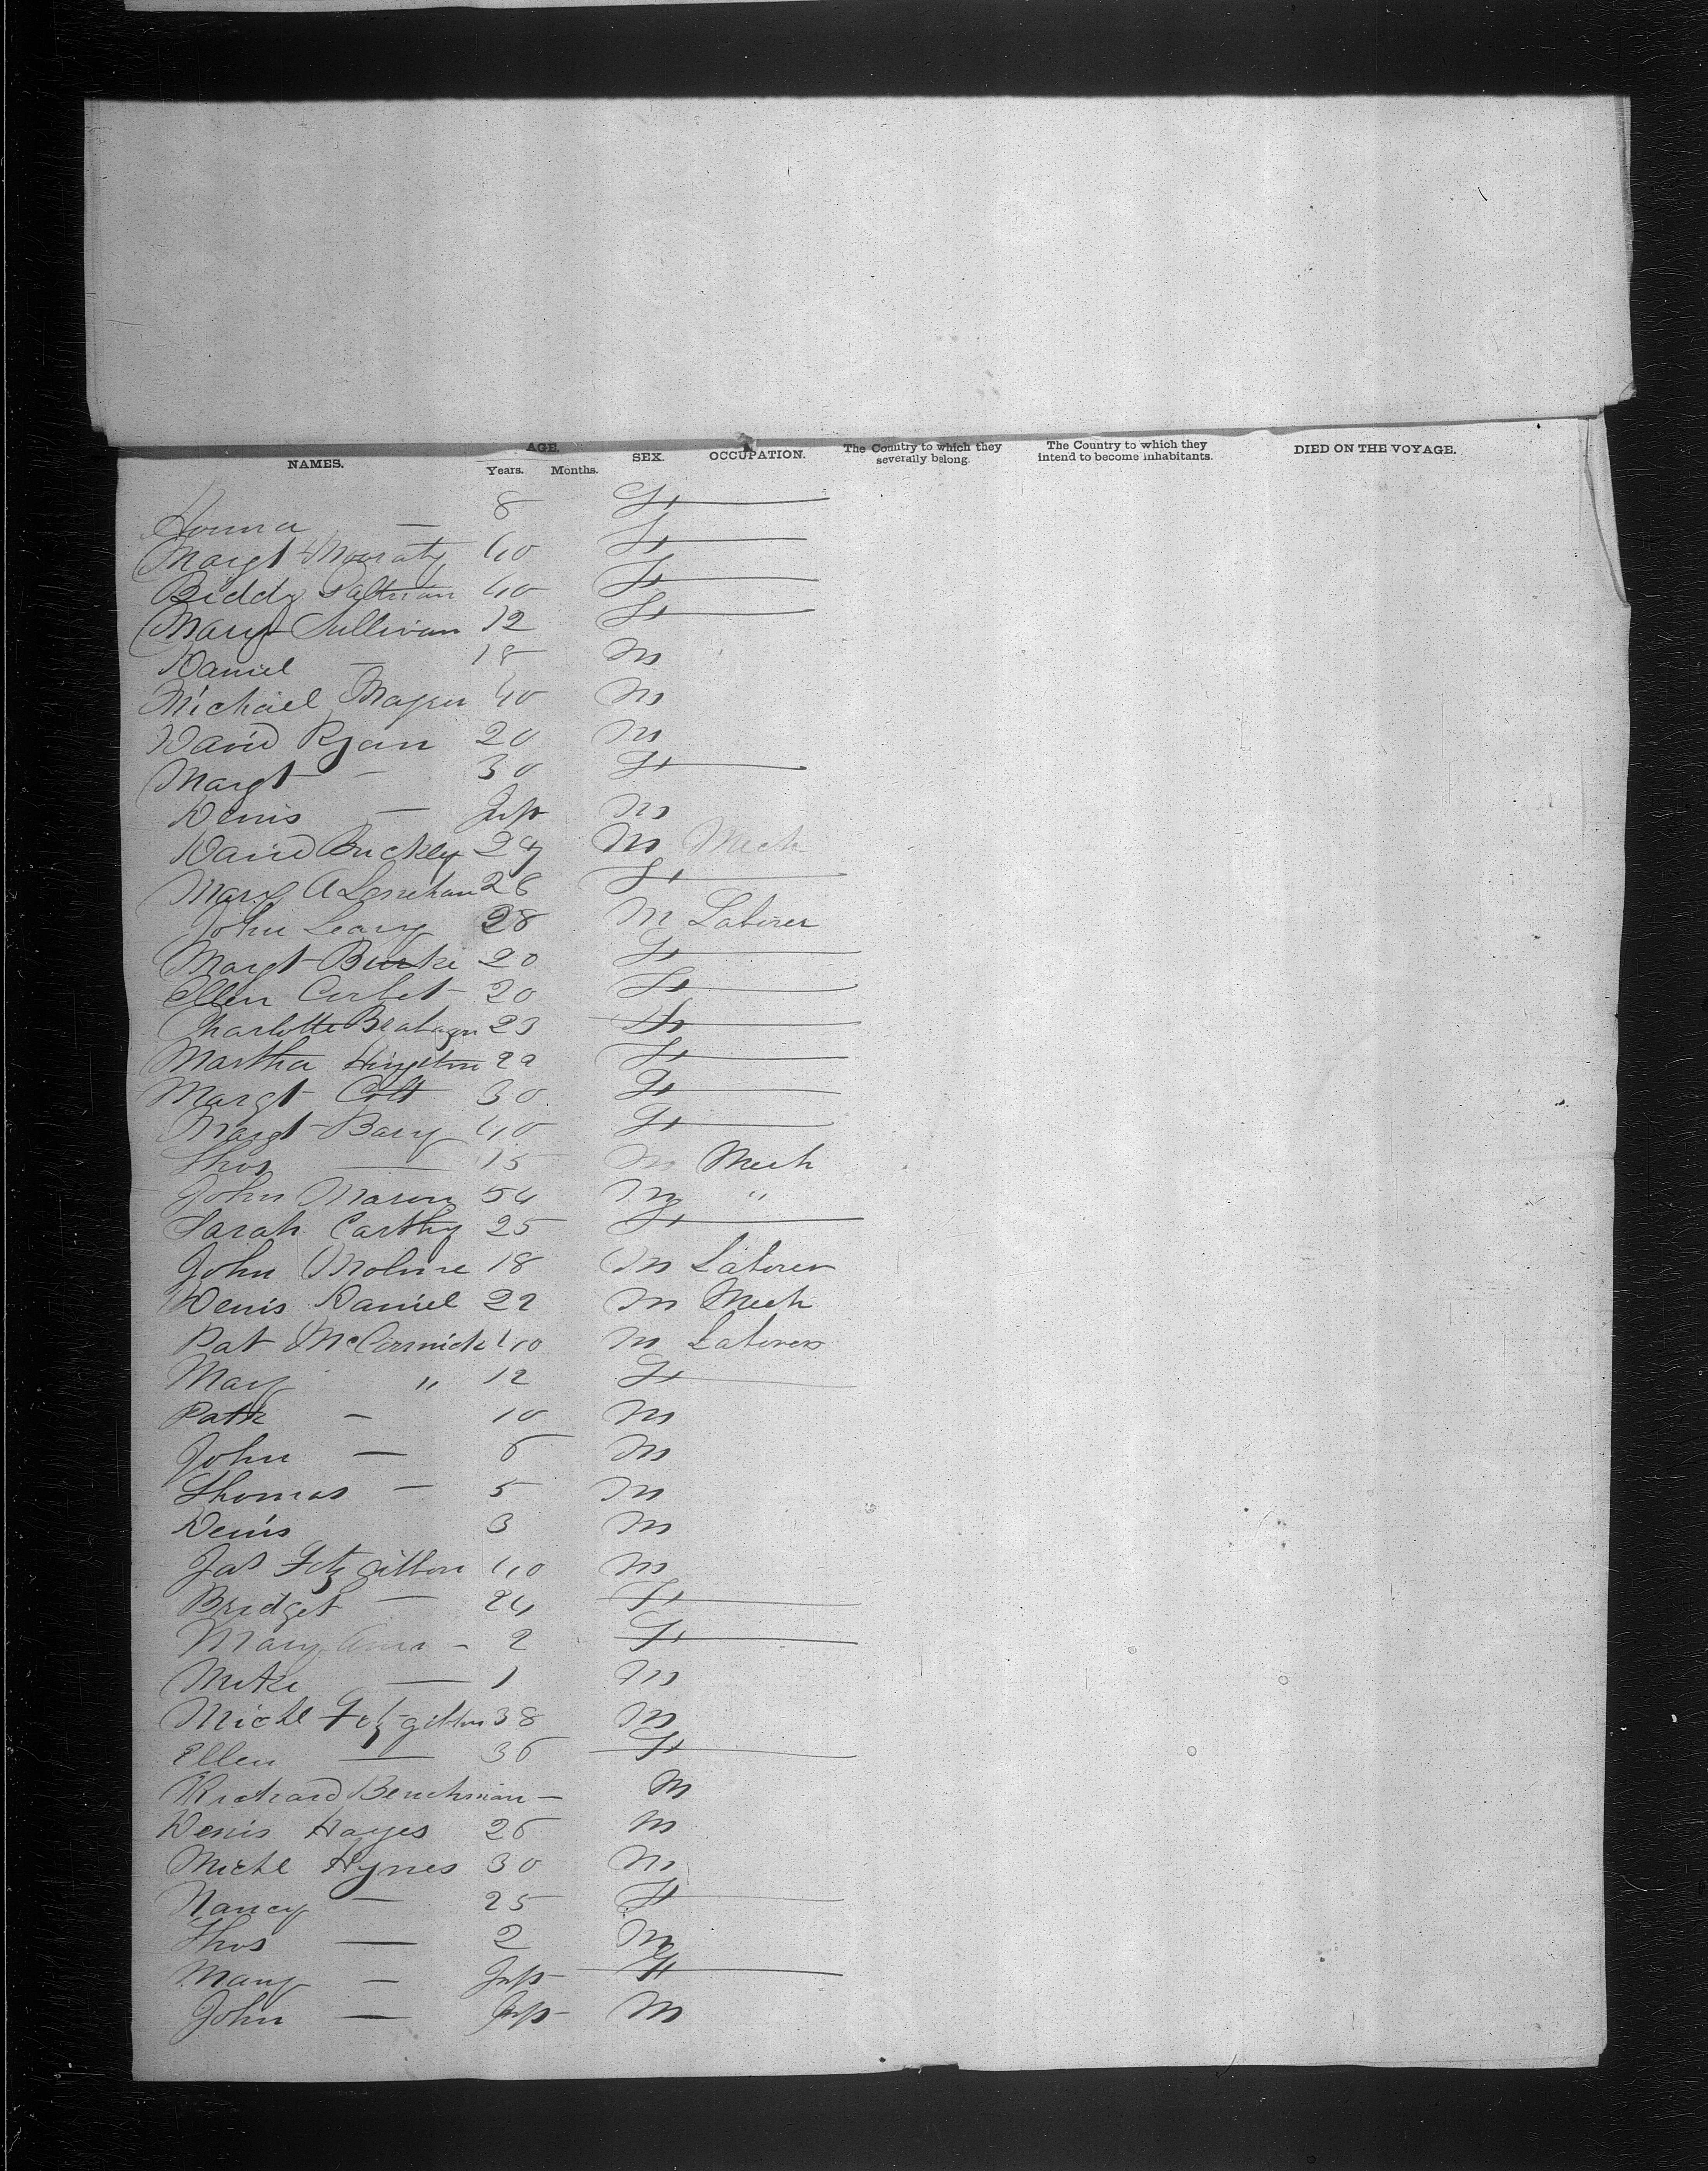 NAMES. AGE. Years. Months. SEX. OCCUPATION. The Country to which they severally belong. The Country to which they intend to become inhabitants. DIED ON THE VOYAGE.
— 8 F
Margt 40 F
Biddy 40 F
Mary Sullivan 12 F
Daniel — 18 M
Michael 40 M
David Ryan 20 M
Margt — 30 F
Denis — Inft M
David Buckley 24 M Mech
Mary A Lenehan 26 F
John Leary 28 M Laborer
Margt Burke 20 F
Ellen Corbet 20 F
Charlotte 23 F
Martha 22 F
Margt Colt 30 F
Margt Bary 40 F
Thos — 15 M Mech
John 54 M "
Sarah Carthy 25 F
John 18 M Laborer
Denis Daniel 22 M Mech
Pat McCormick 40 M Laborer
Mary " 12 F
Patk — 10 M
John — 6 M
Thomas — 5 M
Denis 3 M
Jas Fitzgibbon 40 M
Bridget — 24 F
Mary Ann — 2 F
Mike — 1 M
Michl Fitzgibbon 38 M
Ellen — 36 F
Richard Benchman — M
Denis Hayes 26 M
Michl Hynes 30 M
Nancy — 25 F
Thos — 2 M
Mary — Inft F
John — Inft M